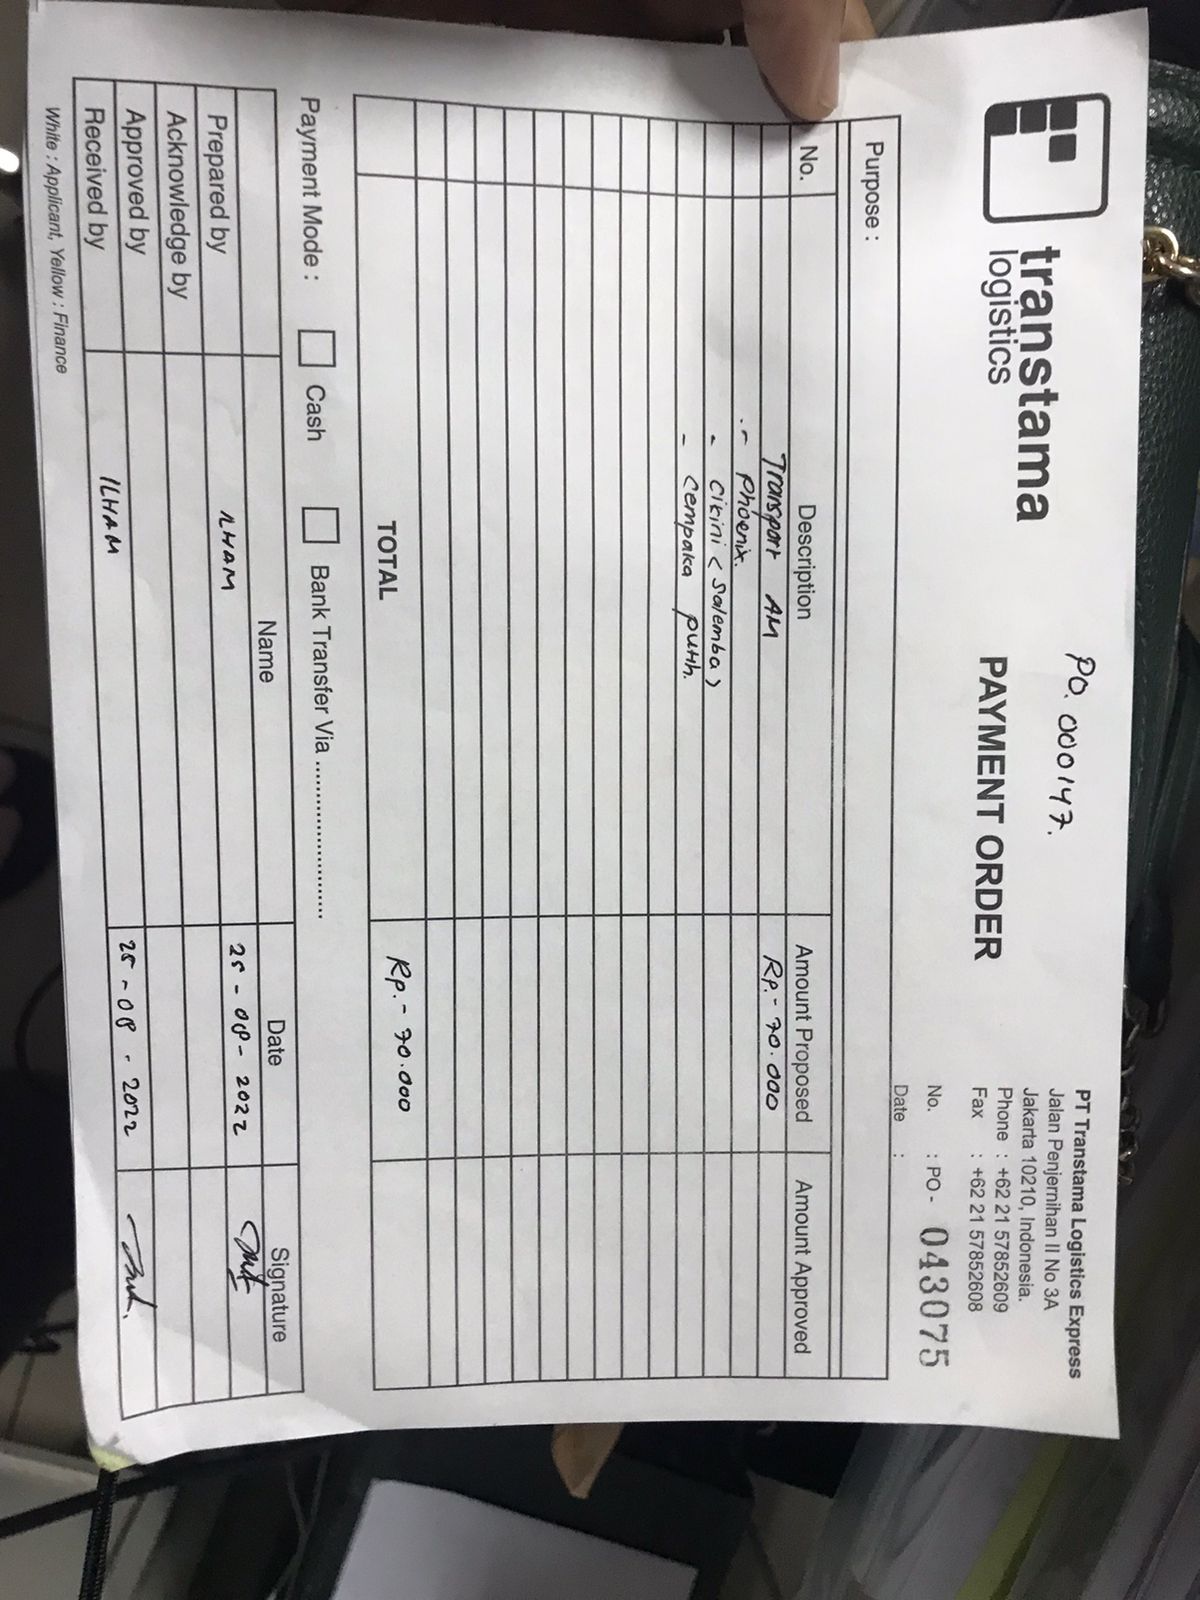 transtama
logistics
PO. 000147.
PAYMENT ORDER
PT Transtama Logistics Express
Jalan Penjernihan II No 3A
Jakarta 10210, Indonesia.
Phone : +62 21 57852609
Fax : +62 21 57852608
No. : PO - 043075
Date :
Purpose :
No. Description Amount Proposed Amount Approved
Transport AM Rp.- 70.000
- Phoenix.
- Cikini ( Salemba )
- Cempaka putih.
TOTAL Rp.- 70.000
Payment Mode : Cash Bank Transfer Via ............................
Name Date Signature
Prepared by ILHAM 25 - 08 - 2022
Acknowledge by
Approved by
Received by ILHAM 25 - 08 - 2022
White : Applicant, Yellow : Finance